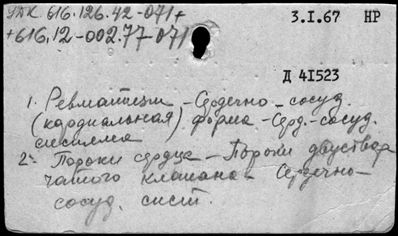 УДК 616.126.42-071+
+616.12-002.77-071
3.I.67 НР
Д 41523
1. Ревматизм - Сердечно-сосуд.
(кардиальная) форма - Серд.-сосуд.
система
2. Пороки сердца - Пороки двуствор
чатого клапана - Сердечно-
сосуд. сист.